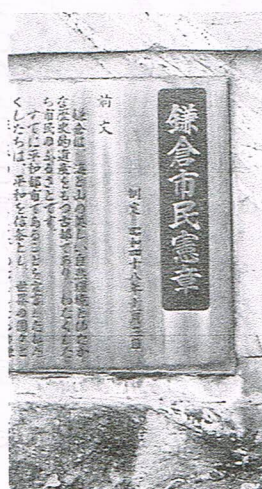 鎌倉市民憲章
制定 昭和四十八年十一月三日
前文
鎌倉は、海と山の美しい自然環境とゆたか
な歴史的遺産をもつ古都であり、わたくした
ち市民のふるさとです。
すでに平和都市であることを宣言したわた
くしたちは、平和を信条とし、世界の国々と